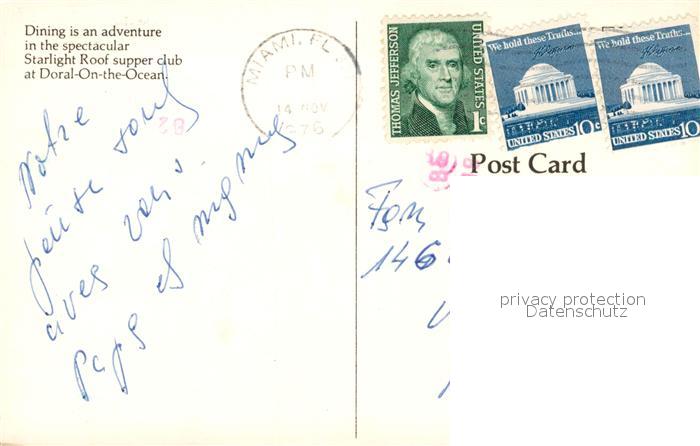 Dining is an adventure
in the spectacular
Starlight Roof supper club
at Doral-On-the-Ocean.
MIAMI, FL
PM
14 NOV
1976
THOMAS JEFFERSON
UNITED STATES
1c
We hold these Truths...
UNITED STATES 10c
We hold these Truths...
UNITED STATES 10
82
Post Card
Notre
pensée sont
avec vous.
Papa et
146
privacy protection
Datenschutz